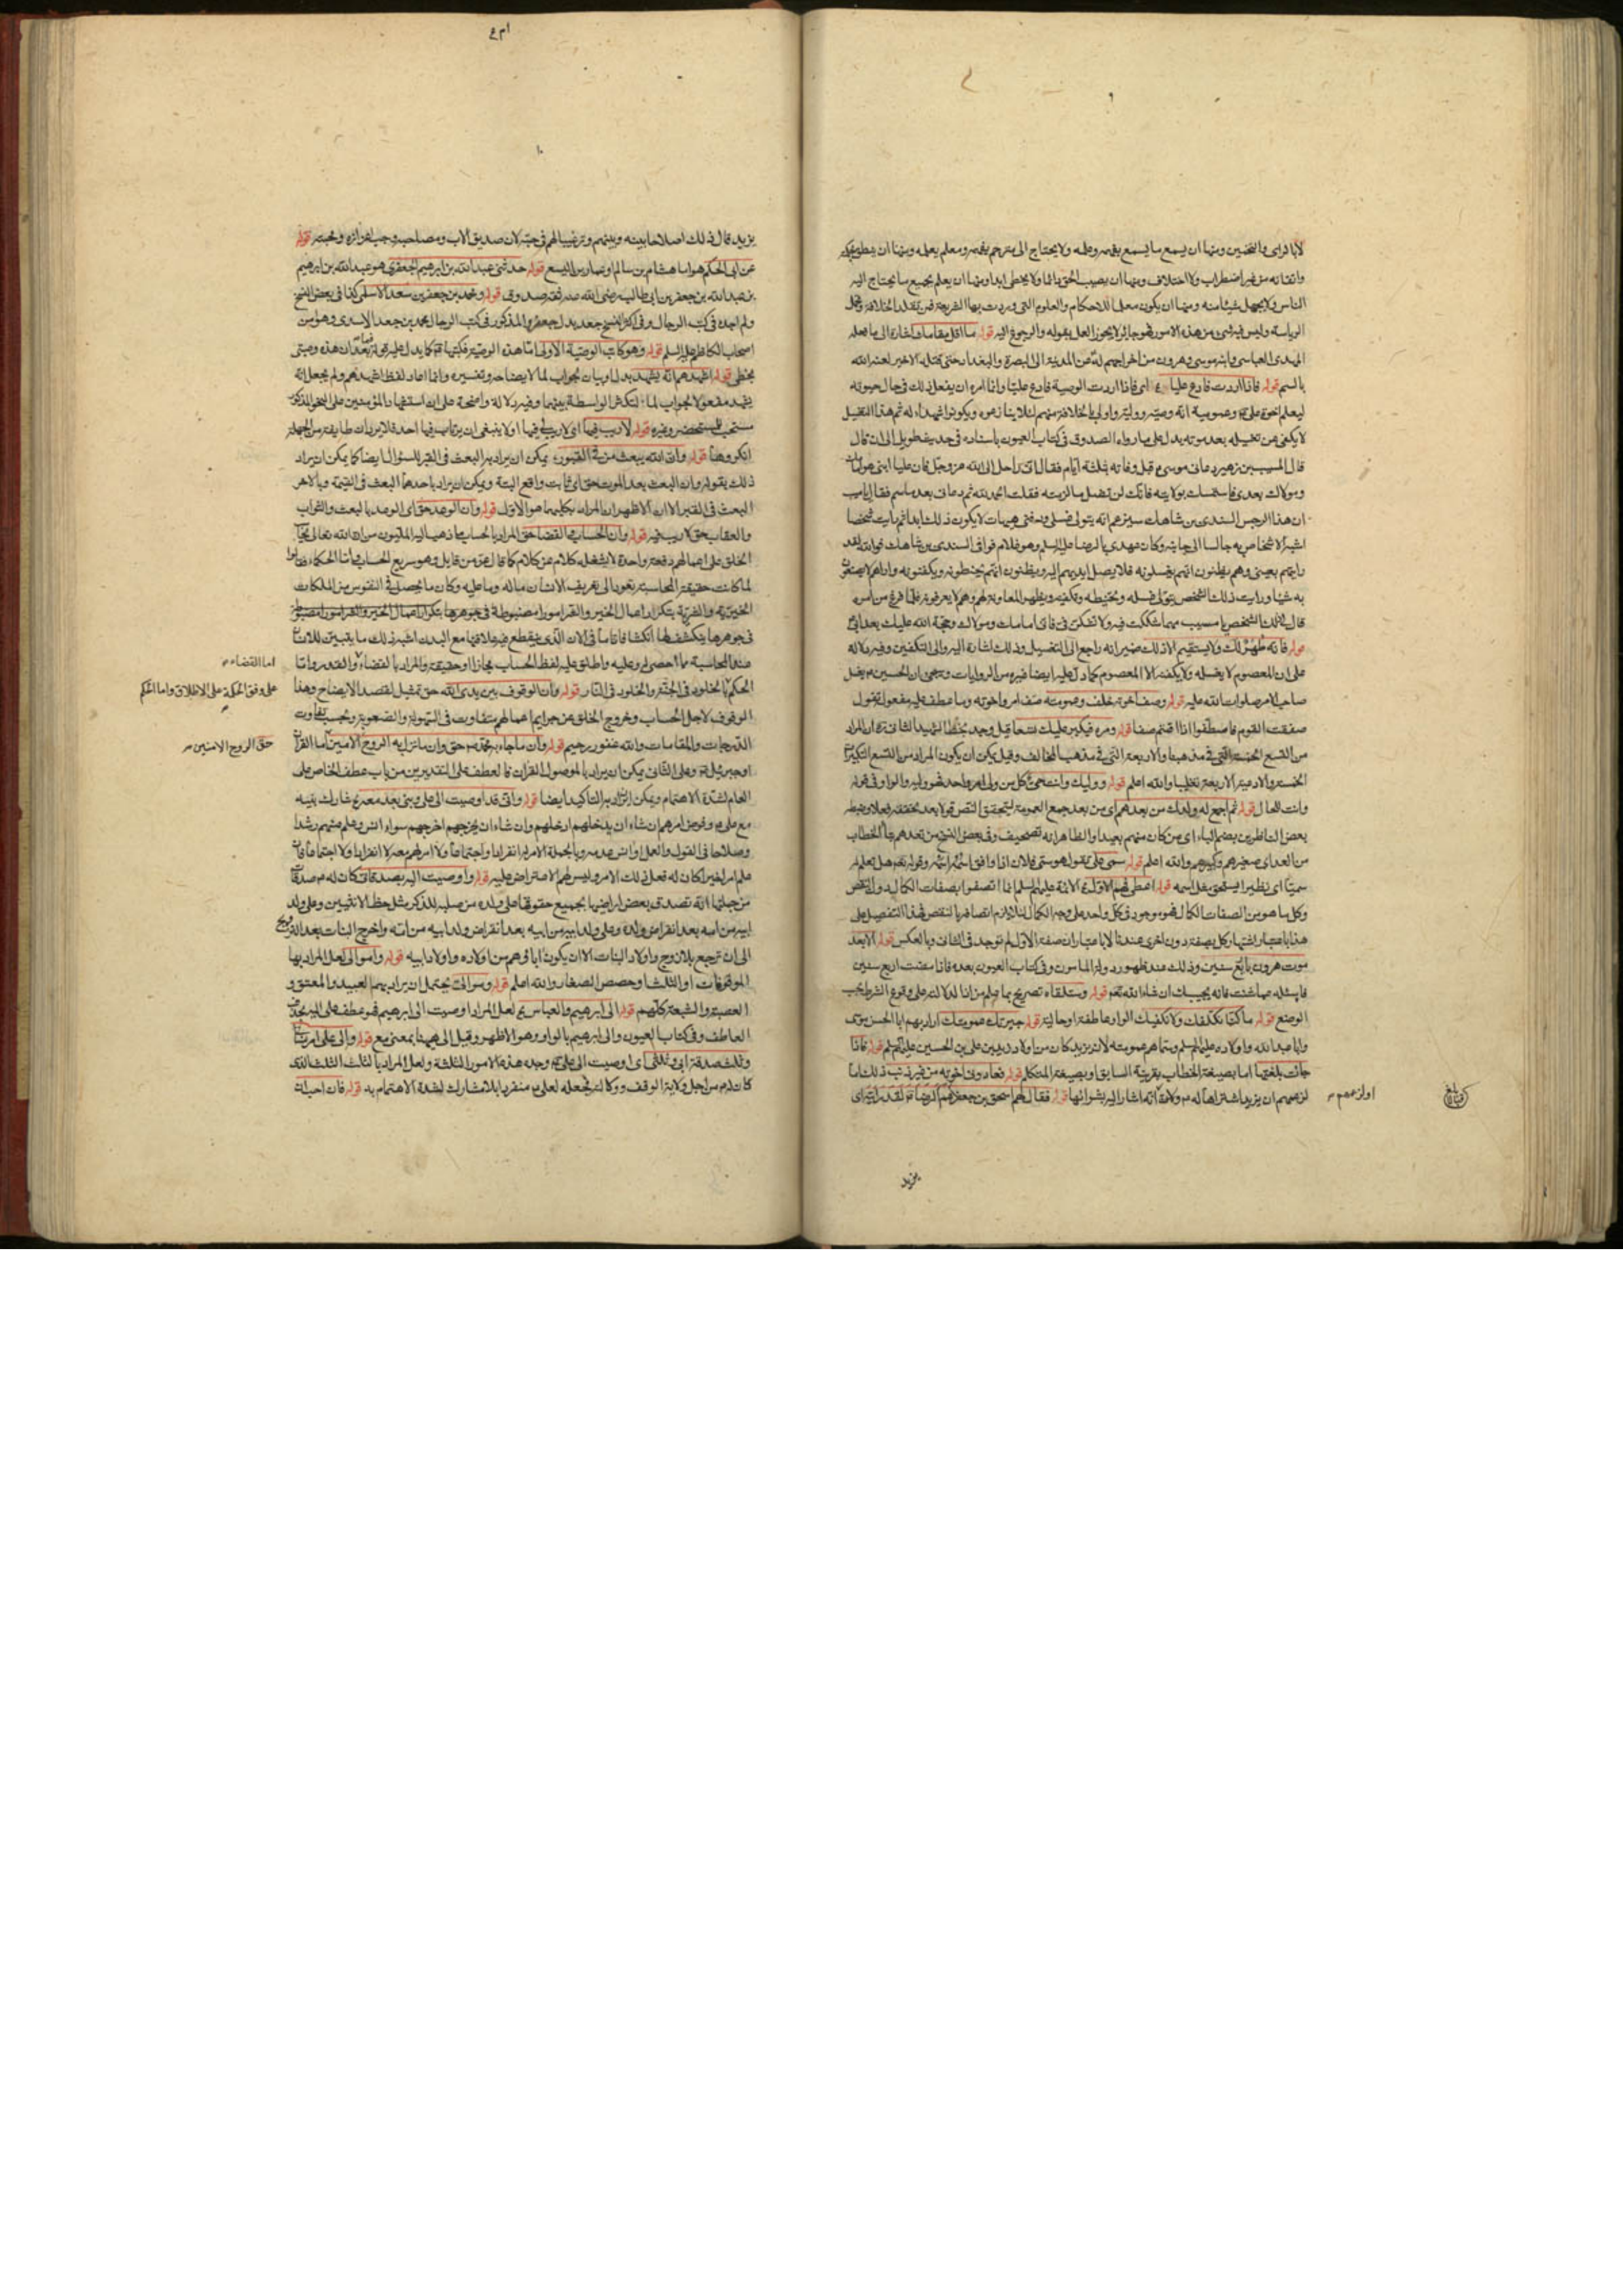 لا بالرأى والتخمين ومنها ان يسمع ما يسمع بفهمه وعلمه ولا يحتاج الى مترجم يفهمه ومعلم يعلمه ومنها ان ينطق بحكم
واتقانه من غير اضطراب ولا اختلاف ومنها ان يصيب الحق دائما ولا يخطى ابدا ومنها ان يعلم جميع ما يحتاج اليه
الناس ولا يجهل شيئا منه ومنها ان يكون معلما للاحكام والعلوم التى وردت بها الشريعة فمن تقلد الخلافة وتحمل
الرياسة وليس فيه شئ من هذه الامور فهو جائر لا يجوز العمل بقوله والرجوع اليه قوله ما اقل مقامك اشارة الى ما فعله
المهدى العباسى وابنه موسى وهرون من اخراجهم له من المدينة الى البصرة والبغداد حتى قتله الاخير لعنه الله
بالسم قوله فاذا اردت فادع عليا ع اى فاذا اردت الوصية فادع عليا وانما امره ان يفعل ذلك فى حال حيوته
ليعلم اخوة على وعمومته انه وصيه ووليه واولى بالخلافة منهم لئلا ينازعوه ويكونوا شهداء له ثم هذا التغسيل
لا يكفى عن تغسيله بعد موته يدل على ما رواه الصدوق فى كتاب العيون باسناده فى حديث طويل الى ان قال
قال المسيب بن زهير دعانى موسى ع قبل وفاته بثلثة ايام فقال انى راحل الى الله عز وجل فان عليا ابنى هو امامك
ومولاك بعدى فاستمسك بولايته فانك لن تضل ما لزمته فقلت الحمد لله ثم دعانى بعد ما سم فقال يا مسيب
ان هذا الرجس السندى بن شاهك سيزعم انه يتولى غسلى ودفنى هيهات لا يكون ذلك ابدا ثم رايت شخصا
اشبه الاشخاص به جالسا الى جانبه وكان عهدى بالرضا عليه السلم وهو غلام فوافى السندى بن شاهك فوالله لقد
رايتهم بعينى وهم يظنون انهم يغسلونه فلا يصل ايديهم اليه ويظنون انهم يحنطونه ويكفنونه واراهم لا يصنعون
به شيئا ورايت ذلك الشخص يتولى غسله وتحنيطه وتكفينه ويظهر المعاونة لهم وهم لا يعرفونه فلما فرغ من امره
قال ذلك الشخص يا مسيب مهما شككت فيه ولا تشكن فى فانى امامك ومولاك وحجة الله عليك بعد ابى
قوله فانه طهر لك ولا يستقيم الا ذلك ضمير انه راجع الى التغسيل وذلك اشارة اليه والى التكفين وفيه دلالة
على ان المعصوم لا يغسله ولا يكفنه الا المعصوم كما دل عليه ايضا غيره من الروايات
صاحب الامر صلوات الله عليه قوله وصف اخوته خلف وعمومته صف امر واخوته وما عطف عليه مفعوله تقول
صففت القوم فاصطفوا اذا اقمتهم صفا قوله ومره فليكبر عليك تسعا
من التسع الخمسة التى فى مذهبنا والاربعة التى فى مذهب المخالف وقيل يمكن ان يكون المراد من التسع التكبيرات
الخمسة والادعية الاربعة تغليبا والله اعلم قوله ووليك وانت حى كل من ولى امر واحد فهو وليه والواو فى قوله
وانت للحال قوله ثم اجمع له ولدك من بعدهم اى من بعد جمع العمومة
بعض الناظرين بضم الباء اى من كان منهم بعيدا والظاهر انه تصحيف وفى بعض النسخ من تعدهم بتاء الخطاب
من العد اى صغيرهم وكبيرهم والله اعلم قوله سمى على
سميا اى نظيرا يستحق مثل اسمه قوله اعطى فهم الاول ع الائمة عليهم السلم انما اتصفوا بصفات الكمال دون النقص
وكل ما هو من الصفات الكمال فهو موجود فى كل واحد على وجه الكمال لئلا يلزم اتصافه بالنقص فهذا التفصيل على
هذا باعتبار اشتهار كل بصفة دون اخرى عندنا لا باعتبار ان صفة الاول لم توجد فى الثانى وبالعكس قوله الا بعد
موت هرون باربع سنين وذلك عند ظهور دولة المامون وفى كتاب العيون بعده فاذا مضت اربع سنين
فاسئله عما شئت فانه يجيبك ان شاء الله تعالى قوله وستلقاه تصريح بما علم من اذا لدلالته على وقوع الشرط بحسب
الوضع قوله ما كنا نكلفك ولا نكفيك الواو عاطفة او حالية قوله جيرتك عمومتك اراد بهم ابا الحسن موسى
وابا عبد الله واولاده عليهم السلم وسماهم عمومته لانه يزيد كان من اولاد زيد بن على بن الحسين عليهم السلم قوله فاذا
جائت بلغتها اما بصيغة الخطاب بقرينة السابق او بصيغة المتكلم قوله فعادونى اخوته من غير ذنب ذلك اما
لزعمهم ان يزيد اشتراها له ع ولامه انه اشار اليه بشرائها قوله فقال لهم اسحق بن جعفر لقد رايته اى
او لزعمهم
يزيد
يزيد قال ذلك اصلاحا بينه وبينهم وترغيبا لهم فى حبه لان صديق الاب ومصاحبه يجب اعزازه ومحبته قوله
عن ابى الحكم هو اما هشام بن سالم او عمار بن اليسع قوله حدثنى عبد الله بن ابرهيم الجعفرى هو عبد الله بن ابرهيم
بن عبد الله بن جعفر بن ابى طالب رضى الله عنه ثقة صدوق قوله ومحمد بن جعفر بن سعد الاسلمى كذا فى بعض النسخ
ولم اجده فى كتب الرجال وفى اكثر النسخ جعد بدل جعفر والمذكور فى كتب الرجال محمد بن جعد الاسدى وهو من
اصحاب الكاظم عليه السلم قوله وهو كاتب الوصية الاولى اما هذه الوصية فكتبها ع كما يدل عليه قوله فيما بعد ان هذه وصيتى
بخطى قوله اشهدهم انه يشهد بدل او بيان لجواب لما لايضاحه وتفسيره وانما اعاد لفظ اشهدهم ولم يجعل انه
يشهد مفعولا لجواب لما لتكثر الواسطة بينهما وفيه دلالة واضحة على ان استشهاد المؤمنين على النحو المذكور
مستحب للمحتضر وغيره قوله لا ريب فيها اى لا ريب لى فيها او لا ينبغى ان يرتاب فيها احد فلا يرد ان طايفة من الجهلة
انكروها قوله وان الله يبعث من فى القبور يمكن ان يراد به البعث فى القبر للسؤال ايضا كما يمكن ان يراد
ذلك بقوله وان البعث بعد الموت حق اى ثابت واقع البتة ويمكن ان يراد باحدهما البعث فى القيمة وبالاخر
البعث فى القبر الا ان الاظهر ان المراد بكليهما هو الاول قوله وان الوعد حق اى الوعد بالبعث والثواب
والعقاب حق لا ريب فيه قوله وان الحساب والقضا حق المراد بالحساب ما ذهب اليه المليون من ان الله تعالى يحاسب
الخلق على اعمالهم دفعة واحدة لا يشغله كلام عن كلام كما قال عز من قائل وهو سريع الحساب واما الحكماء فقالوا
لما كانت حقيقة المحاسبة تعود الى تعريف الانسان ماله وما عليه وكان ما يحصل فى النفوس من الملكات
الخيرية والشرية بتكرار اعمال الخير والشر امورا مضبوطة فى جوهرها
فى جوهرها ينكشف لها انكشافا تاما فى الان الذى ينقطع فيه علاقتها مع البدن اشبه ذلك ما يتبين للانسان
عند المحاسبة مما احصى له وعليه واطلق عليه لفظ الحساب مجازا او حقيقة والمراد بالقضاء والقدر واما
الحكم بالخلود فى الجنة والخلود فى النار قوله وان الوقوف بين يدى الله حق تمثيل لقصد الايضاح وهذا
الوقوف لاجل الحساب وخروج الخلق عن جرايم اعمالهم متفاوت فى السهولة والصعوبة وبحسب تفاوت
الدرجات والمقامات والله غفور رحيم قوله وان ما جاء به محمد ص حق وان ما نزل به الروح الامين اما القران
او جبرئيل وعلى الثانى يمكن ان يراد بالموصول القران فالعطف على التقديرين من باب عطف الخاص على
العام لشدة الاهتمام ويمكن ان يراد به التاكيد ايضا قوله وانى قد اوصيت الى على وبنى بعد معه ع شارك بنيه
مع على ع وفوض امرهم ان شاء ان يدخلهم ادخلهم وان شاء ان يخرجهم اخرجهم سواء انس وعلم منهم رشدا
وصلاحا فى القول والعمل او انس عدمه وبالجملة الامر له انفرادا واجتماعا ولا امر لهم معه لا انفرادا ولا اجتماعا فان
علم امر لغير كان له فعل ذلك الامر وليس لهم الاعتراض عليه قوله واوصيت اليه بصدقاتى كان له ع صدقات
من جملتها انه تصدق ببعض اراضيها بجميع حقوقها على ولده من صلبه للذكر مثل حظ الانثيين وعلى ولد
ابيه من امه بعد انقراض ولده وعلى ولد ابيه من ابيه بعد انقراض ولد ابيه من امه واخرج البنات بعد التزويج
الى ان ترجع بلا زوج واولاد البنات الا ان يكون اباؤهم من اولاده واولاد ابيه قوله واموالى لعل المراد بها
الموقوفات او الثلث او حصص الصغار والله اعلم قوله وموالى يحتمل ان يراد بهم العبيد والمعتق و
العصبة والشيعة كلهم قوله الى ابرهيم والعباس لعل المراد اوصيت الى ابرهيم فهو عطف على اليه بحذف
العاطف وفى كتاب العيون والى ابرهيم بالواو وهو الاظهر وقيل الى ههنا بمعنى مع قوله والى على امر نسائى
وثلث صدقة ابى وثلثى اى اوصيت الى على ع وحده هذه الامور الثلثة ولعل المراد بالثلث الثلث الذى
كان لهم من اجل ولاية الوقف ووكالته فجعله لعلى ع منفردا بلا مشارك لشدة الاهتمام به قوله فان احب ان
اما القضاء
على وفق الحكمة على الاطلاق واما الحكم
حق الروح الامين